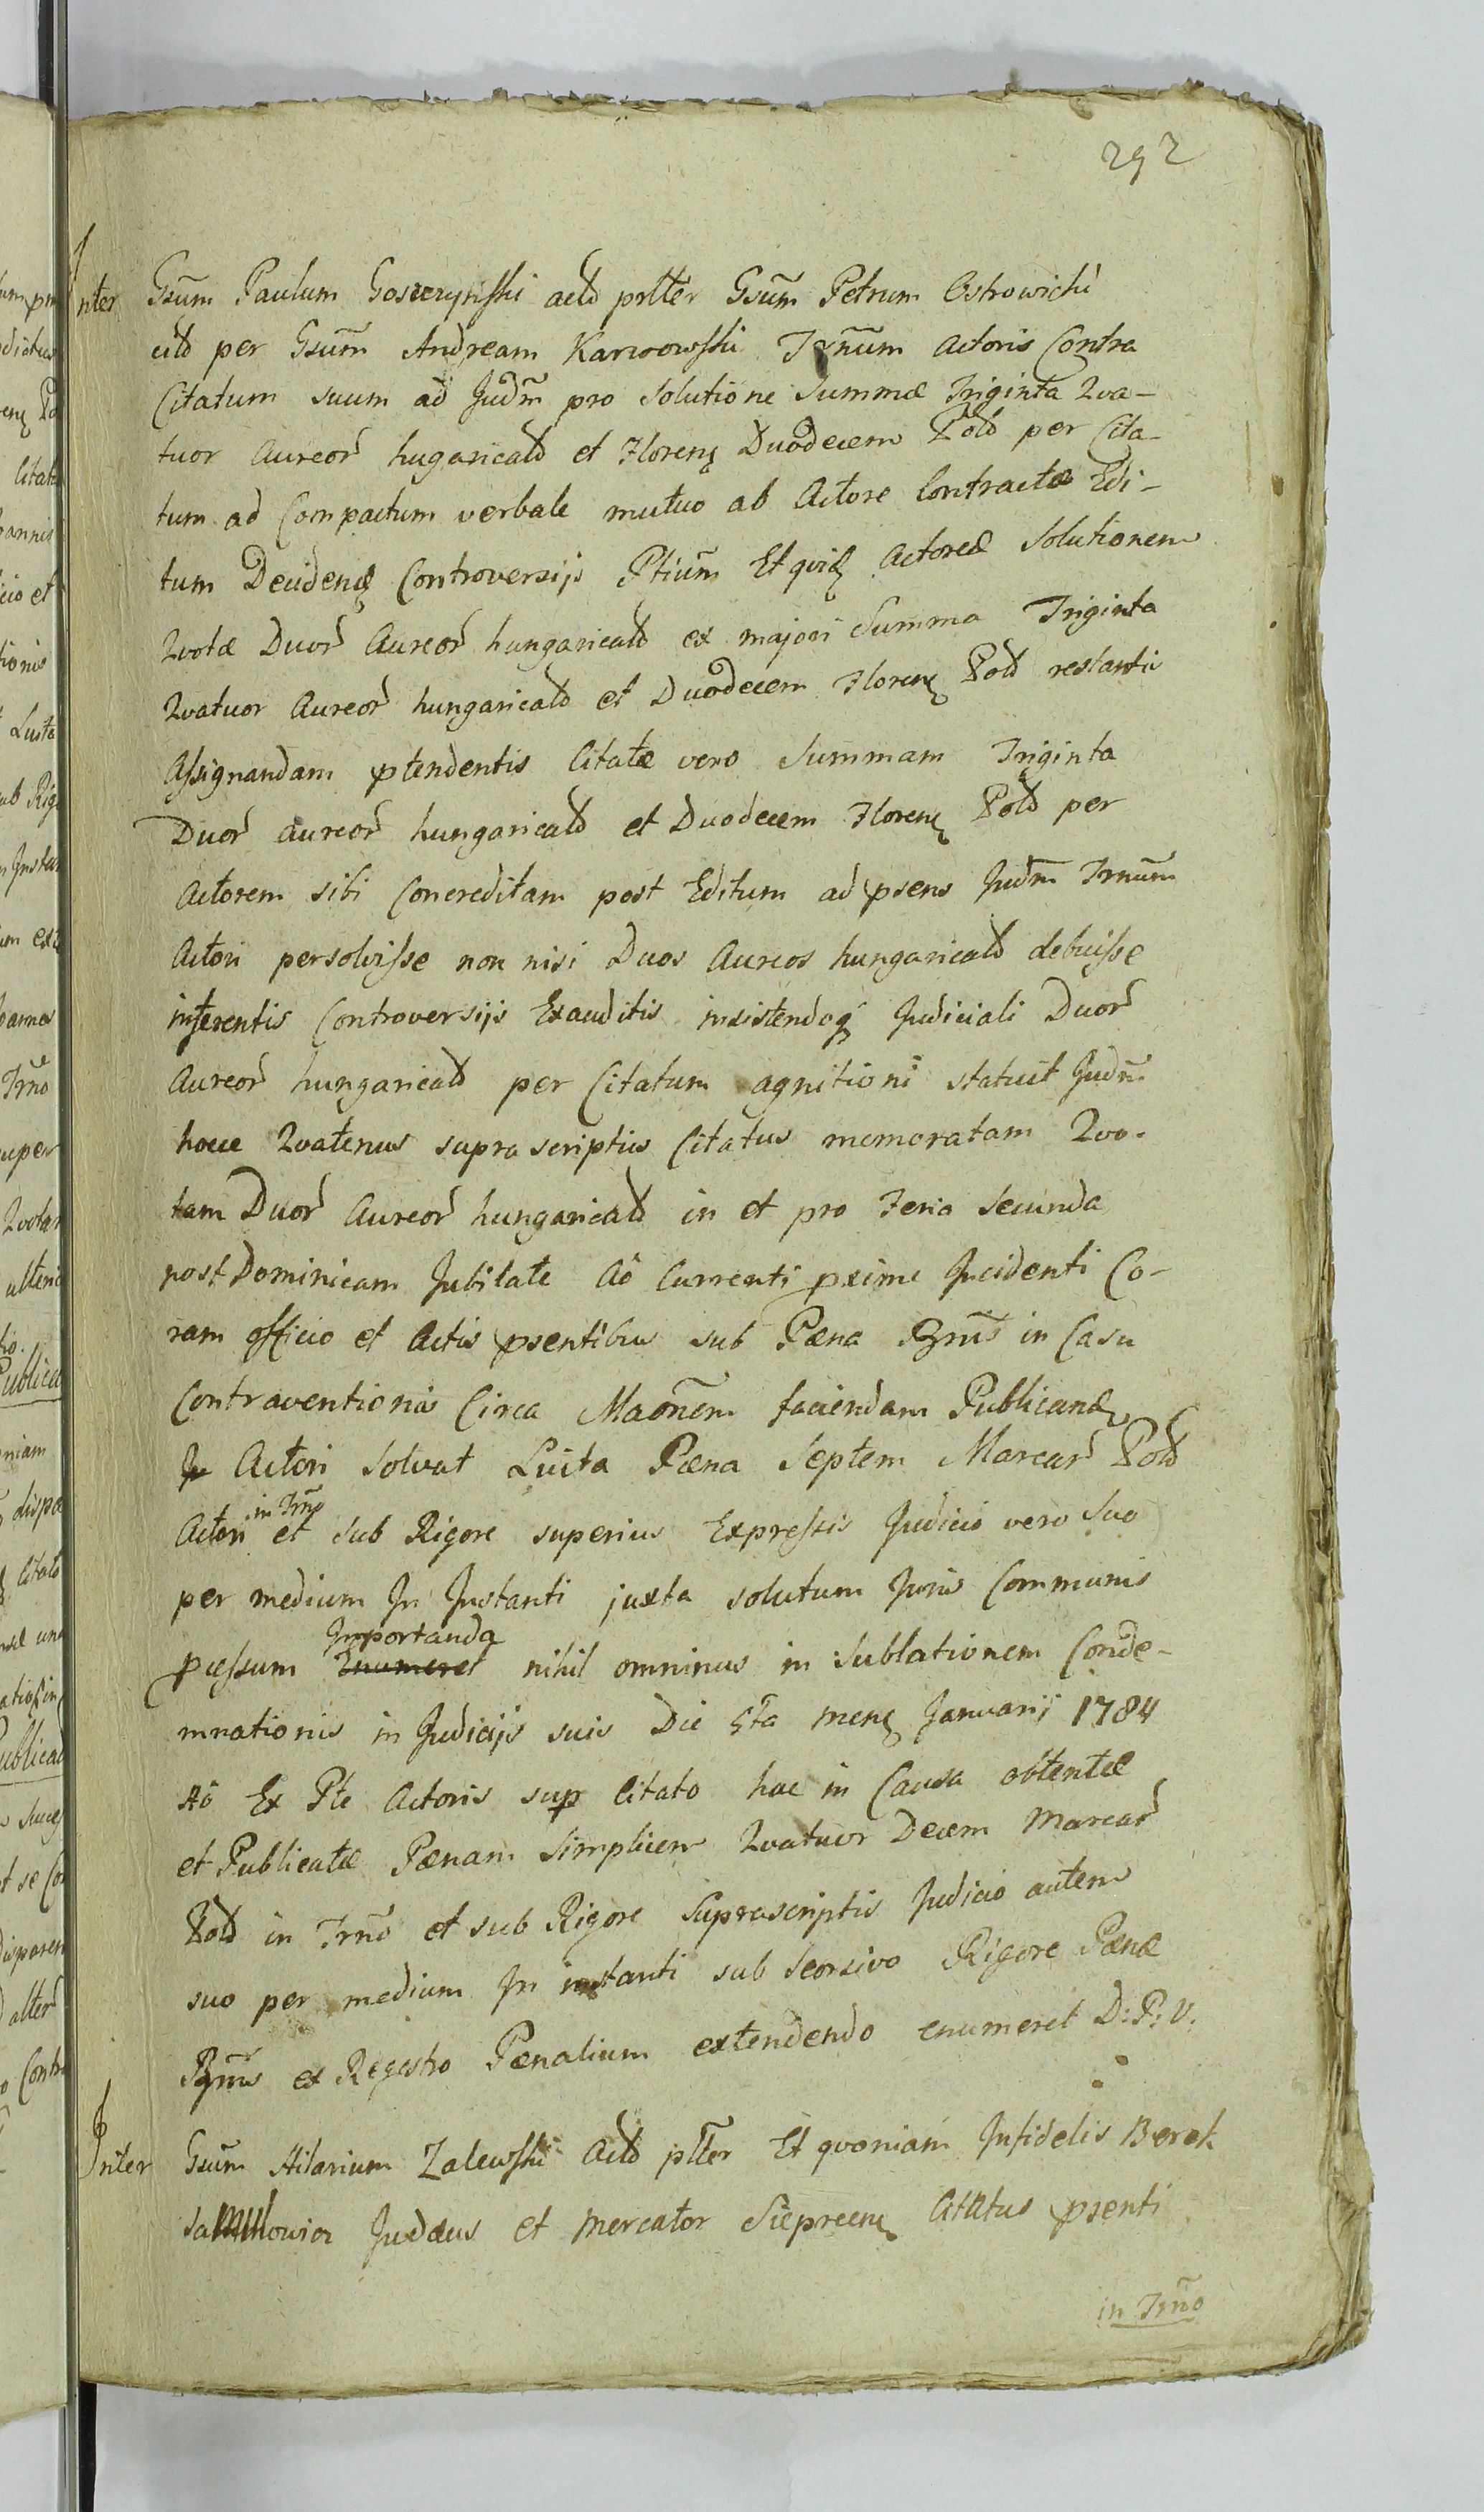 292
Inter Gsũm Paulum Goszczynski actd prtter Gsũm Petrum Ostrowicki
citd per Gsũm Andream Karwowski Trñum Actoris Contra
Citatum suum ad Judm̃ pro Solutione Summæ Triginta Qva-
tuor Aureor hugaricald et Floren Duodecem Pold per Cita-
tum ad Compactum verbale mutuo ab Actore Contractæ Edi-
tum Decidend Controversijs Ptium̃ Et qvid Actoreæ Solutionem
Qvotæ Duor Aureor hungaricald ex majori Summa Triginta
Qvatuor Aureor hungaricald et Duodecem Floren Pold restanti
Assignandam ptendentis Citatæ vero Summam Triginta
Duor aureor hungaricald et Duodecem Floren Pold per
Actorem sibi Concreditam post Editum ad psens Judm̃ Trnum̃
Actori persolvisse non nisi Duos Aureos hungaricald debuisse
inferentis Controversijs Exauditis insistendoq Judiciali Duor
Aureor hungaricald per Citatum agnitioni statuit Judm̃
hocce Qvatenus supra scriptus Citatus memoratam Qvo-
tam Duor Aureor hungaricald in et pro Feria Secunda
post Dominicam Jubilate Aô Currenti pxime Incidenti Co-
ram officio et Actis psentibus sub Pæna Bgnis in Casu
Contraventionis Circa Maõnem faciendam Publicand
Actori Solvat Luita Pæna Septem Marcar Pold
Actori in Trño et sub Rigore superius Expressis Judicio vero Suo
per medium In Instanti juxta solutum Juris Communis
pcessum Enumeret Importanda nihil omninus in Sublationem Conde-
mnationis in Judicijs suis Die 5ta Mens Januarij 1784
Aô Ex Pte Actoris sup Citato hac in Causa obtentæ
et Publicatæ Pænam Simplicem Qvatuor Decem Marcar
Pold in Trño et sub Rigore Suprascriptis Judicio autem
suo per medium In instanti sub Seorsivo Rigore Pænæ
Bgnis ex Regestro Pænalium extendendo enumeret D: P: V:
Inter Gsũm Hilarium Zalewski Actd pltter Et qvoniam Infidelis Berek
Judæus et Mercator Siepreen Citatus psenti
in Trño